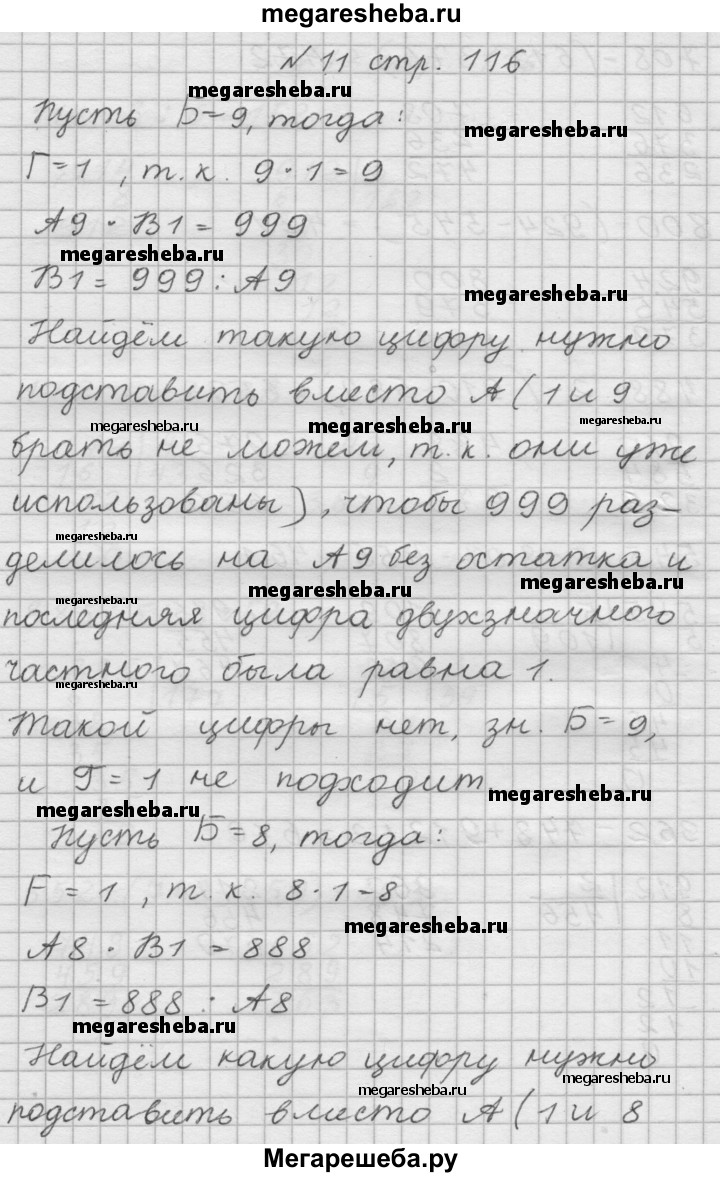 megaresheba.ru
№ 11 стр. 116
megaresheba.ru
Пусть Б=9, тогда:
megaresheba.ru
Г=1, т.к. 9·1=9
А9·В1=999
megaresheba.ru
В1=999:А9
megaresheba.ru
Найдём такую цифру нужно
подставить вместо А (1 и 9
megaresheba.ru megaresheba.ru megaresheba.ru
брать не можем, т.к. они уже
использованы), чтобы 999 раз-
megaresheba.ru
делилось на А9 без остатка и
megaresheba.ru megaresheba.ru
megaresheba.ru
последняя цифра двухзначного
частного была равна 1.
megaresheba.ru
Такой цифры нет, зн. Б=9,
и Г=1 не подходит.
megaresheba.ru megaresheba.ru
Пусть Б=8, тогда:
Г=1, т.к. 8·1-8
megaresheba.ru
А8·В1=888
В1=888:А8
megaresheba.ru
Найдём какую цифру нужно
megaresheba.ru megaresheba.ru
подставить вместо А (1 и 8
Мегарешеба.ру